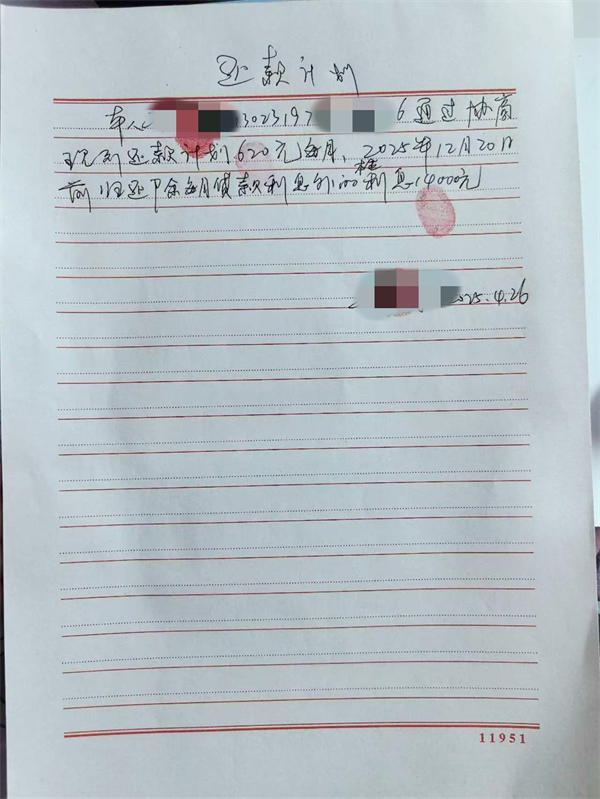 还款计划
本人 3023197 6通过协商
现列还款计划620元每月，2025年12月20日
前归还P余每月贷款利息外的核利息14000元
2025.4.26
11951